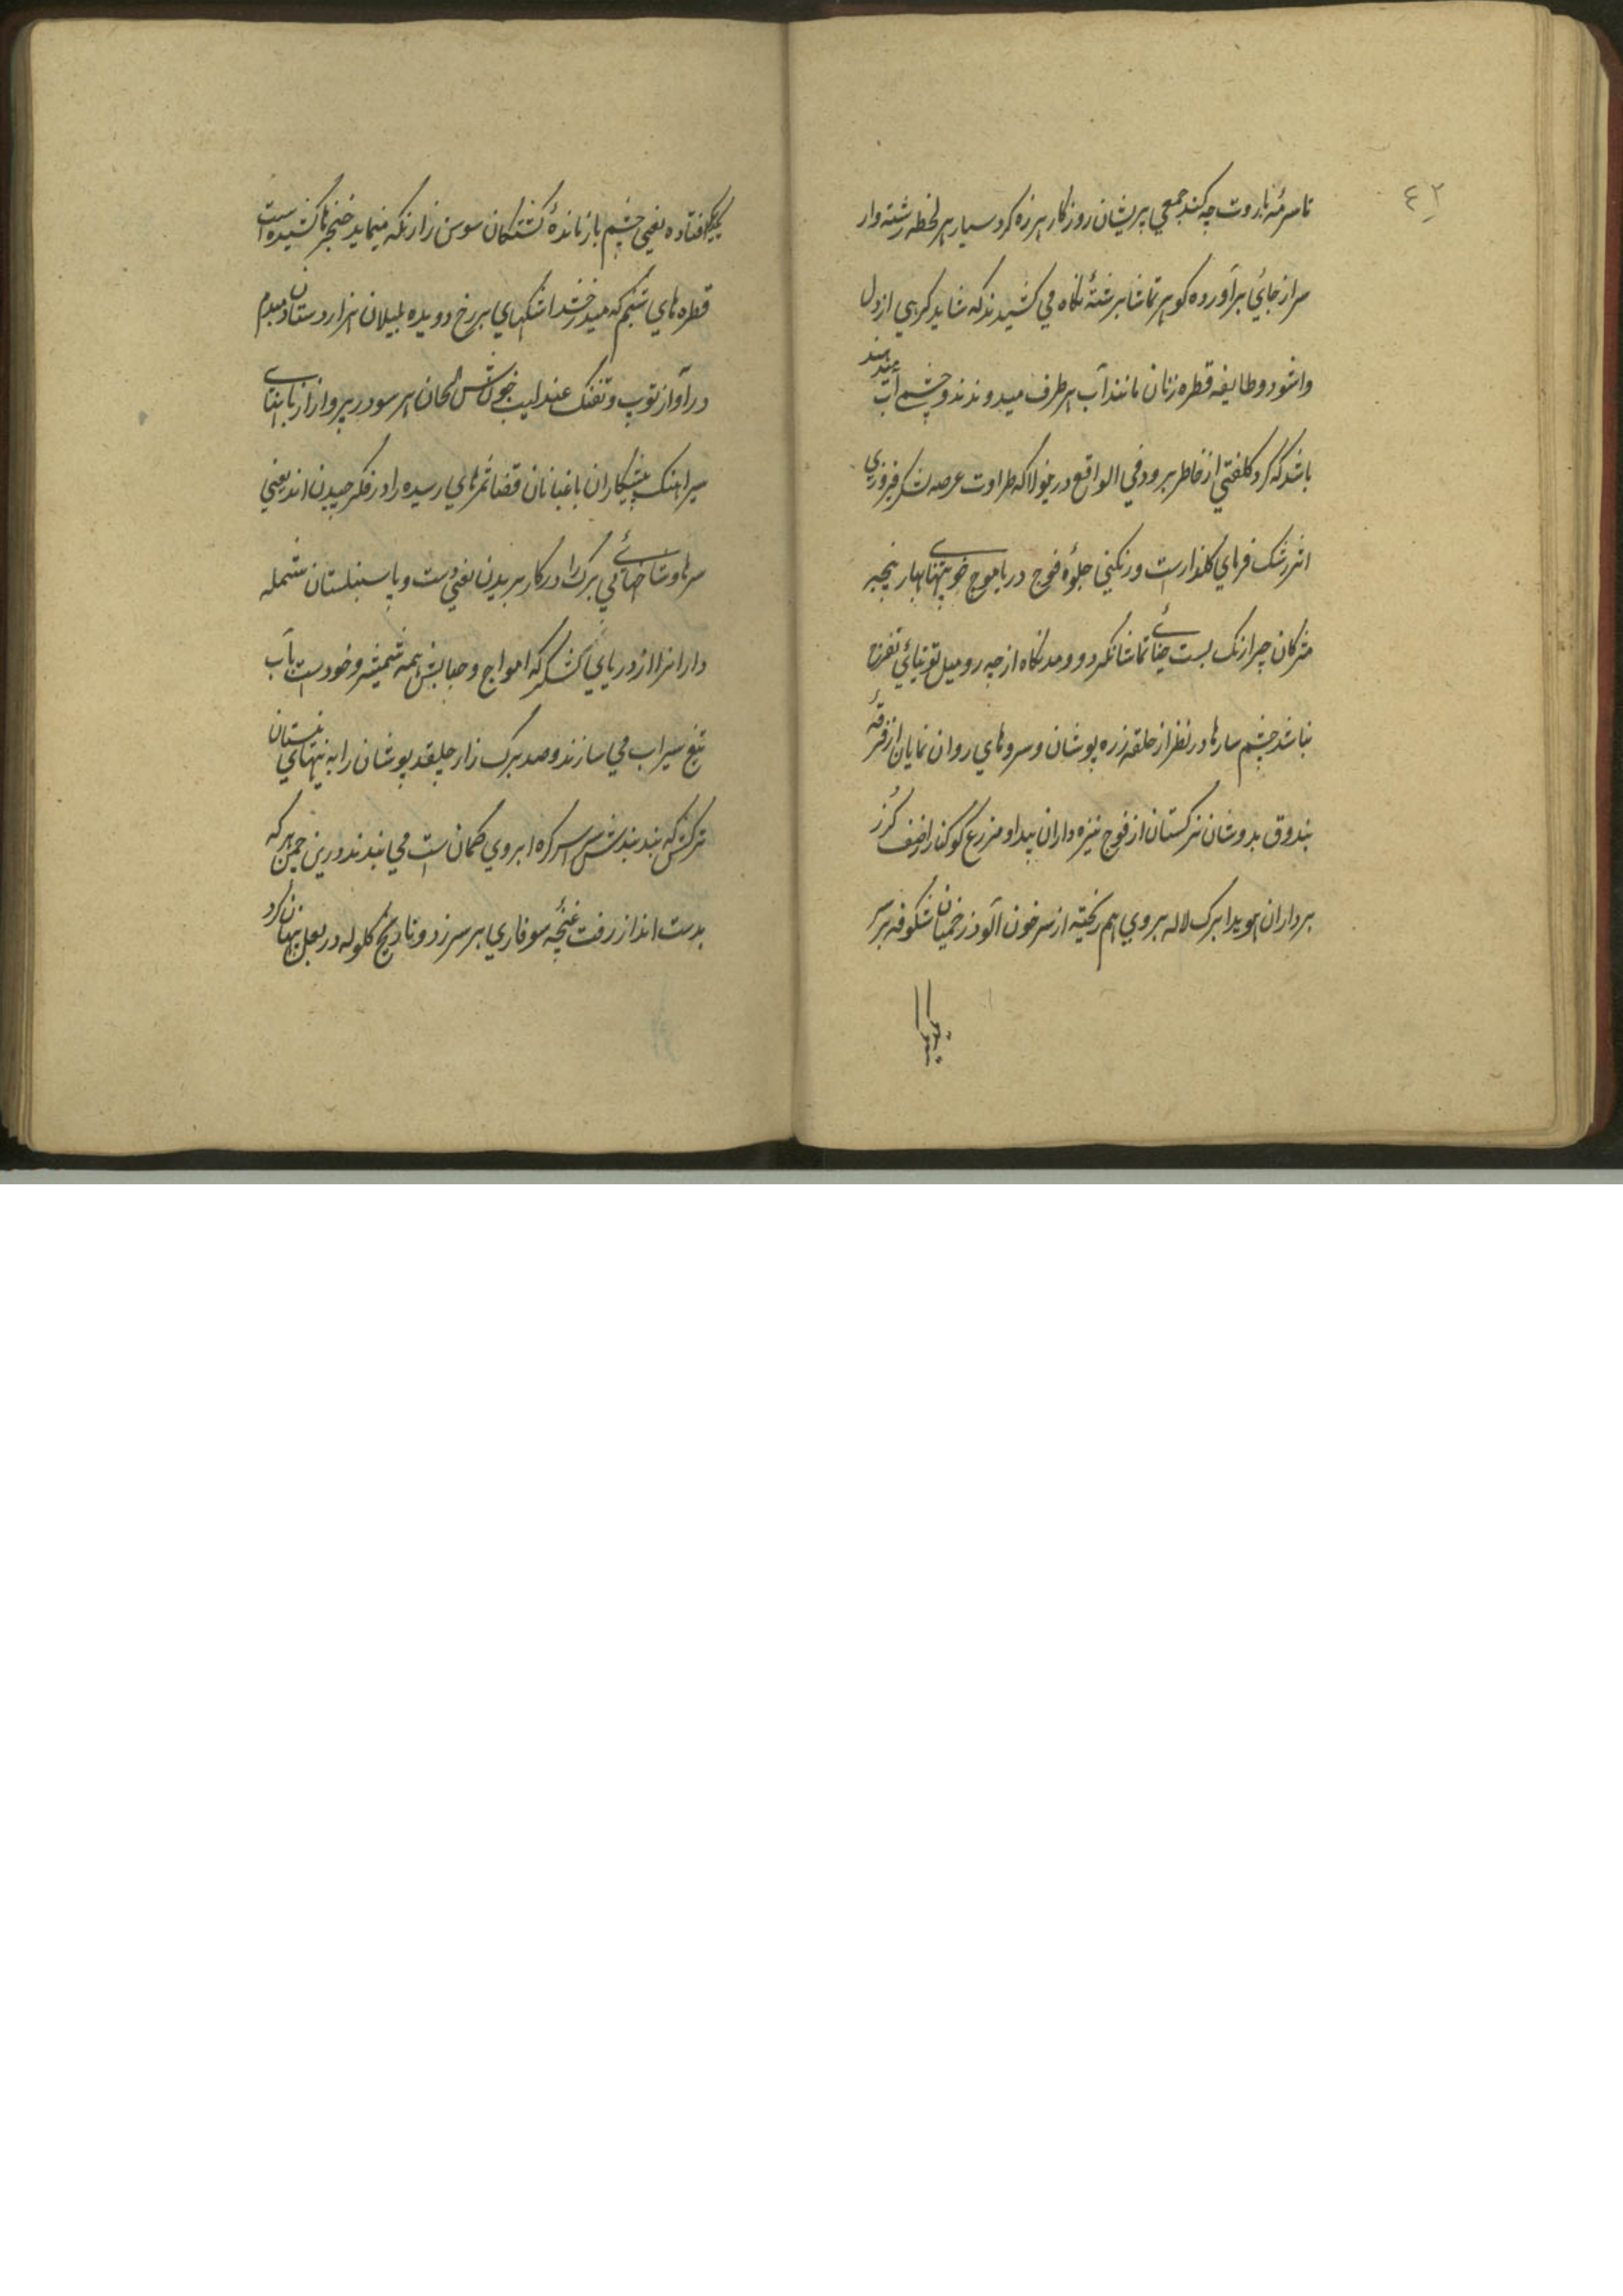 ٤٢
تا سرمهٔ باروت چه کند جمعی پریشان روزکار هرزه کرد سیار هر لحظه رشته وار
سر از جائی برآورده کوهر تماشا برشتهٔ نکاه می کشیدند که شاید کرهی از دل
واشود و طایفه قطره زنان مانند آب هر طرف میدویدند و چشمی آب میدهند
باشد که کرد کلفتی از خاطر برود فی الواقع در جولانکه طراوت عرصه لشکر فیروزی
اثر رشک فرمای کلزارست و رنکینی جلوهٔ فوج دریا موج خونبهای بهار پنجه
مژکان چرا رنک بست حنائی تماشا نکردد و مد نکاه از چه رو میل توتیائی تفرج
نباشد چشم سارها در نظر از حلقه زره پوشان و سروهای روان نمایان از فرقهٔ
بندوق بدوشان نرکستان از فوج نیزه داران پیدا و مزرع کوکنار از صف کرز
برداران هویدا برک لاله بروی هم ریخته از سر خون آلود زخمیان شکوفه بر سر
یکدیکر افتاده یعنی چشم باز ماندهٔ کشتکان سوسن زار زنکه مینماید خنجرها کشیده است
قطره های شبنم که میدرخشد اشکهای بر رخ دویده بلبلان هزار دستان دمبدم
در آواز توپ و تفنک عندلیب خوش الحان هر سو در پرواز از نابتهای
سیر آهنک پیشکاران باغبانان قضا ثمرهای رسیده را در فکر چیدن اند یعنی
سرها و شاخهائی بی برک را در کار بریدن یعنی دست و پا سنبلستان شمله
داران را از دریای لشکر که امواج و حبابش همه شمشیر و خودست بآب
تیغ سیراب می سازند و صد برک زار چلقد پوشان را به نیهای نیستان
ترکش که بند بندش سراسر کره ابروی کمان است می بندند درین چمن هر که
بدست انداز رفت غنچهٔ سوفاری بر سر زد و نارنج کلوله در بغل پنهان کرد